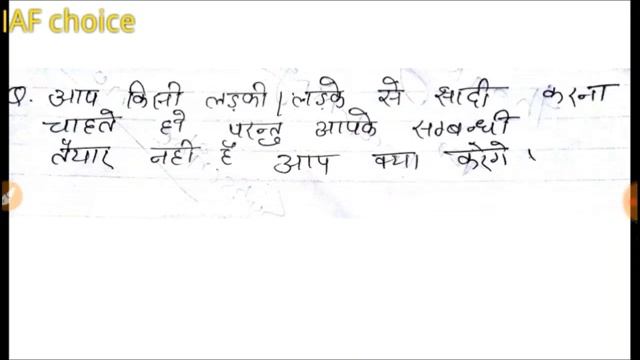 IAF choice
Q. आप किसी लड़की / लड़के से सादी करना
चाहते हो परन्तु आपके सम्बन्धी
तैयार नही है आप क्या करेगे ।